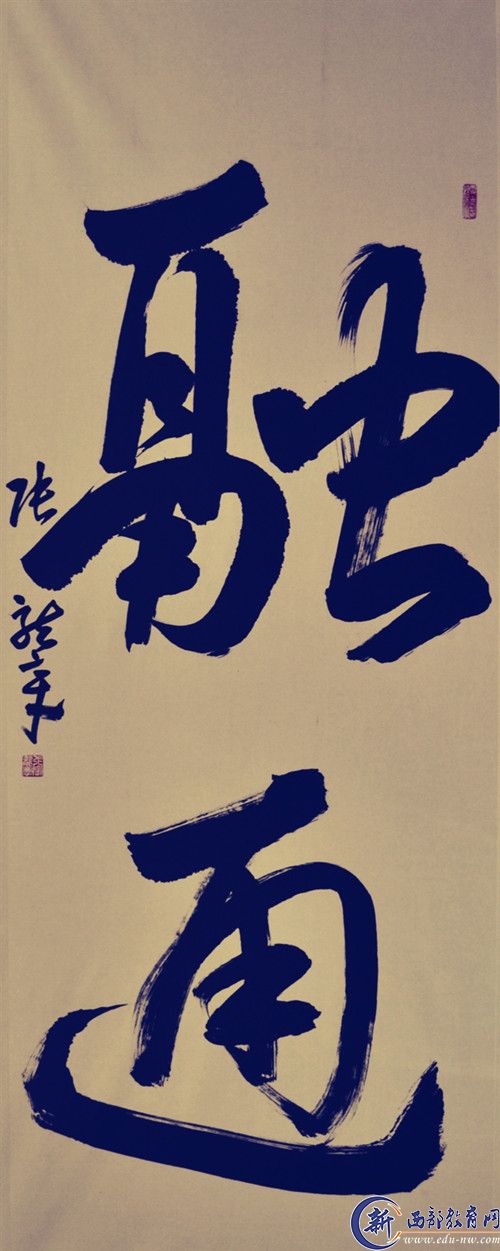 融通
张
新 西部教育网
www.edu-nw.com